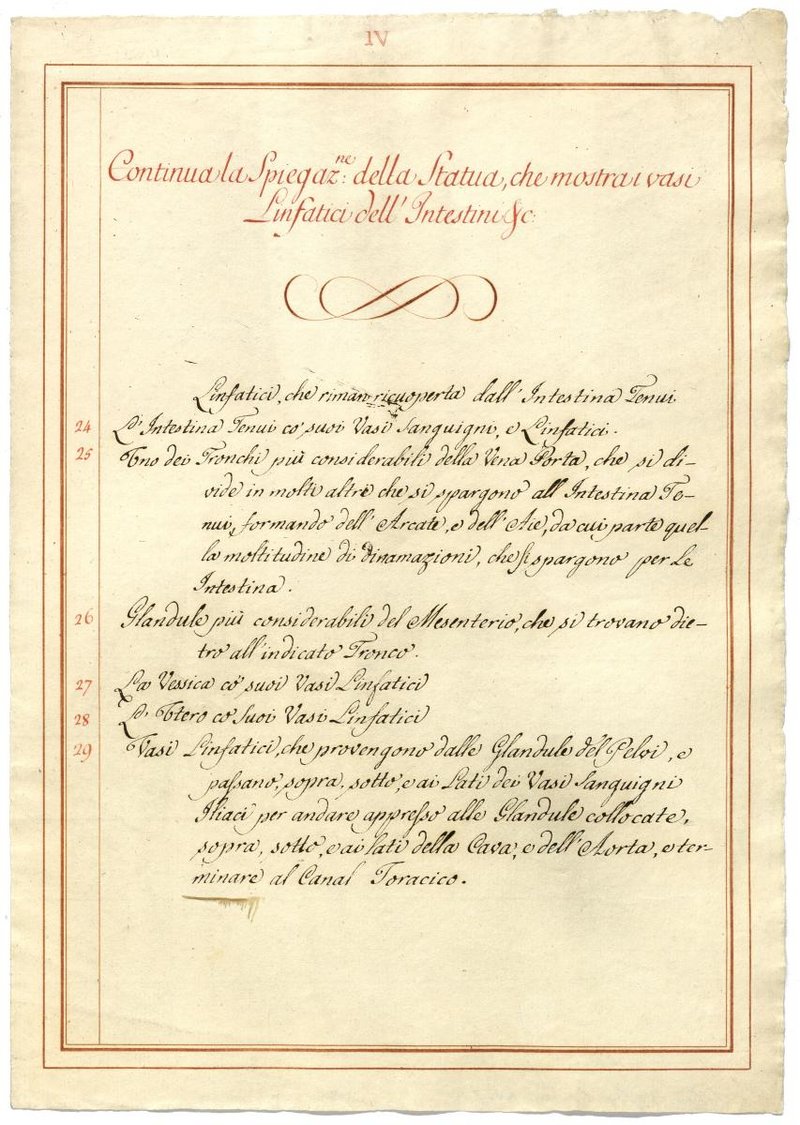 IV
Continua la Spiegaz:ne della Statua, che mostra i vasi
Linfatici dell' Intestini &c:
Linfatici, che riman ricuoperta dall' Intestina Tenui
24 L' Intestina Tenui co' suoi Vasi Sanguigni, e Linfatici.
25 Uno dei Tronchi più considerabili della Vena Porta, che si di-
vide in molti altri che si spargono all' Intestina Te-
nui, formando dell' Arcate, e dell' Aie, da cui parte quel-
la moltitudine di diramazioni, che si spargono per Le
Intestina.
26 Glandule più considerabili del Mesenterio, che si trovano die-
tro all' indicato Tronco.
27 La Vessica co' suoi Vasi Linfatici
28 L' Utero co' Suoi Vasi Linfatici
29 Vasi Linfatici, che provengono dalle Glandule del Pelvi, e
passano, sopra, sotto, e ai Lati dei Vasi Sanguigni
Iliaci per andare appresso alle Glandule collocate,
sopra, sotto, e ai lati della Cava, e dell' Aorta, e ter-
minare al Canal Toracico.